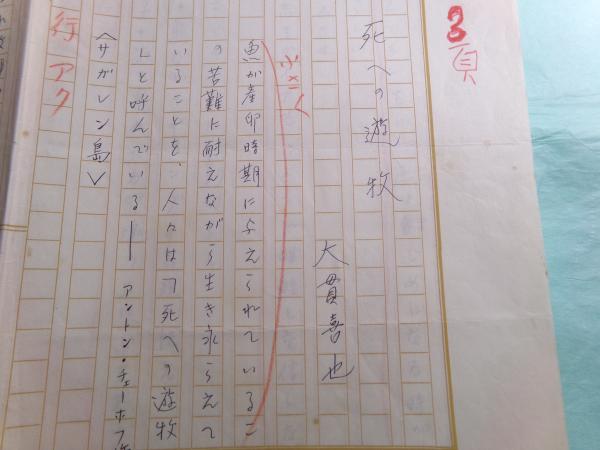 3頁
死への遊牧
大貫喜也
小さく
魚が産卵時期に与えられているこ
の苦難に耐えながら生き永らえて
いることを、人々は「死への遊牧
」と呼んでいる── アントン・チェーホフ
〈サガレン島〉
行アク